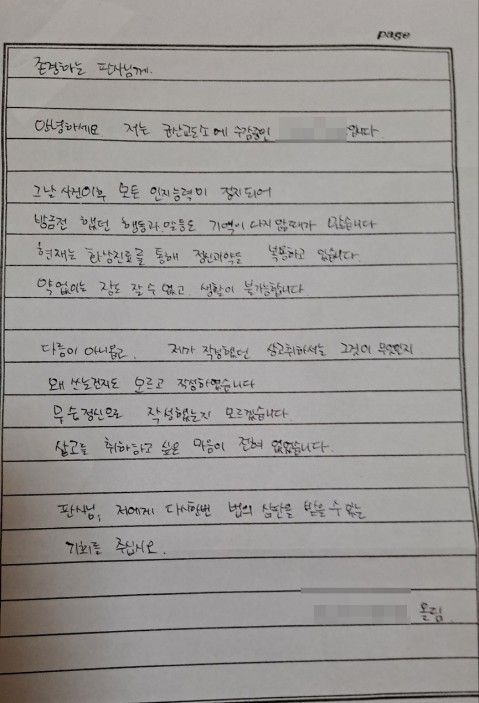 page
존경하는 판사님께.
안녕하세요 저는 군산교도소에 수감중인 입니다.
그날 사건이후 모든 인지능력이 정지되어
방금전 했던 행동과 말들도 기억이 나지 않을때가 많습니다
현재는 화상진료를 통해 정신과약을 복용하고 있습니다.
약 없이는 잠도 잘 수 없고, 생활이 불가능합니다
다름이 아니옵고, 제가 작성했던 상고취하서는 그것이 무엇인지
왜 쓰는건지도 모르고 작성하였습니다
무슨정신으로 작성했는지 모르겠습니다.
상고를 취하하고 싶은 마음이 전혀 없었습니다.
판사님, 저에게 다시한번 법의 심판을 받을 수 있는
기회를 주십시오.
올림.